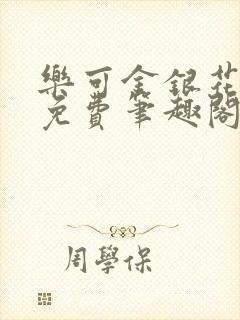 樂可金銀花
免費筆趣閣
周學保